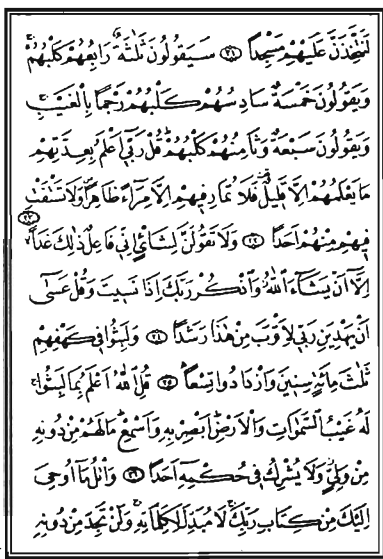 لَنَتَّخِذَنَّ عَلَيْهِمْ مَسْجِداً ﴿٢١﴾ سَيَقُولُونَ ثَلٰثَةٌ رَابِعُهُمْ كَلْبُهُمْۚ
وَيَقُولُونَ خَمْسَةٌ سَادِسُهُمْ كَلْبُهُمْ رَجْماً بِالْغَيْبِۚ
وَيَقُولُونَ سَبْعَةٌ وَثَامِنُهُمْ كَلْبُهُمْۜ قُلْ رَبّ۪ٓي اَعْلَمُ بِعِدَّتِهِمْ
مَا يَعْلَمُهُمْ اِلَّا قَل۪يلٌ۠ فَلَا تُمَارِ ف۪يهِمْ اِلَّا مِرَٓاءً ظَاهِراًۖ وَلَا تَسْتَفْتِ
ف۪يهِمْ مِنْهُمْ اَحَداً ﴿٢٢﴾ وَلَا تَقُولَنَّ لِشَايْءٍ اِنّ۪ي فَاعِلٌ ذٰلِكَ غَداًۙ ﴿٢٣﴾
اِلَّٓا اَنْ يَشَٓاءَ اللّٰهُۘ وَاذْكُرْ رَبَّكَ اِذَا نَس۪يتَ وَقُلْ عَسٰٓى
اَنْ يَهْدِيَنِ رَبّ۪ي لِاَقْرَبَ مِنْ هٰذَا رَشَداً ﴿٢٤﴾ وَلَبِثُوا ف۪ي كَهْفِهِمْ
ثَلٰثَ مِائَةٍ سِن۪ينَ وَازْدَادُوا تِسْعاً ﴿٢٥﴾ قُلِ اللّٰهُ اَعْلَمُ بِمَا لَبِثُواۚ
لَهُ غَيْبُ السَّمٰوَاتِ وَالْاَرْضِۜ اَبْصِرْ بِه۪ وَاَسْمِعْۜ مَا لَهُمْ مِنْ دُونِه۪
مِنْ وَلِيٍّۘ وَلَا يُشْرِكُ ف۪ي حُكْمِه۪ٓ اَحَداً ﴿٢٦﴾ وَاتْلُ مَٓا اُو۫حِيَ
اِلَيْكَ مِنْ كِتَابِ رَبِّكَۚ لَا مُبَدِّلَ لِكَلِمَاتِه۪ۚ وَلَنْ تَجِدَ مِنْ دُونِه۪